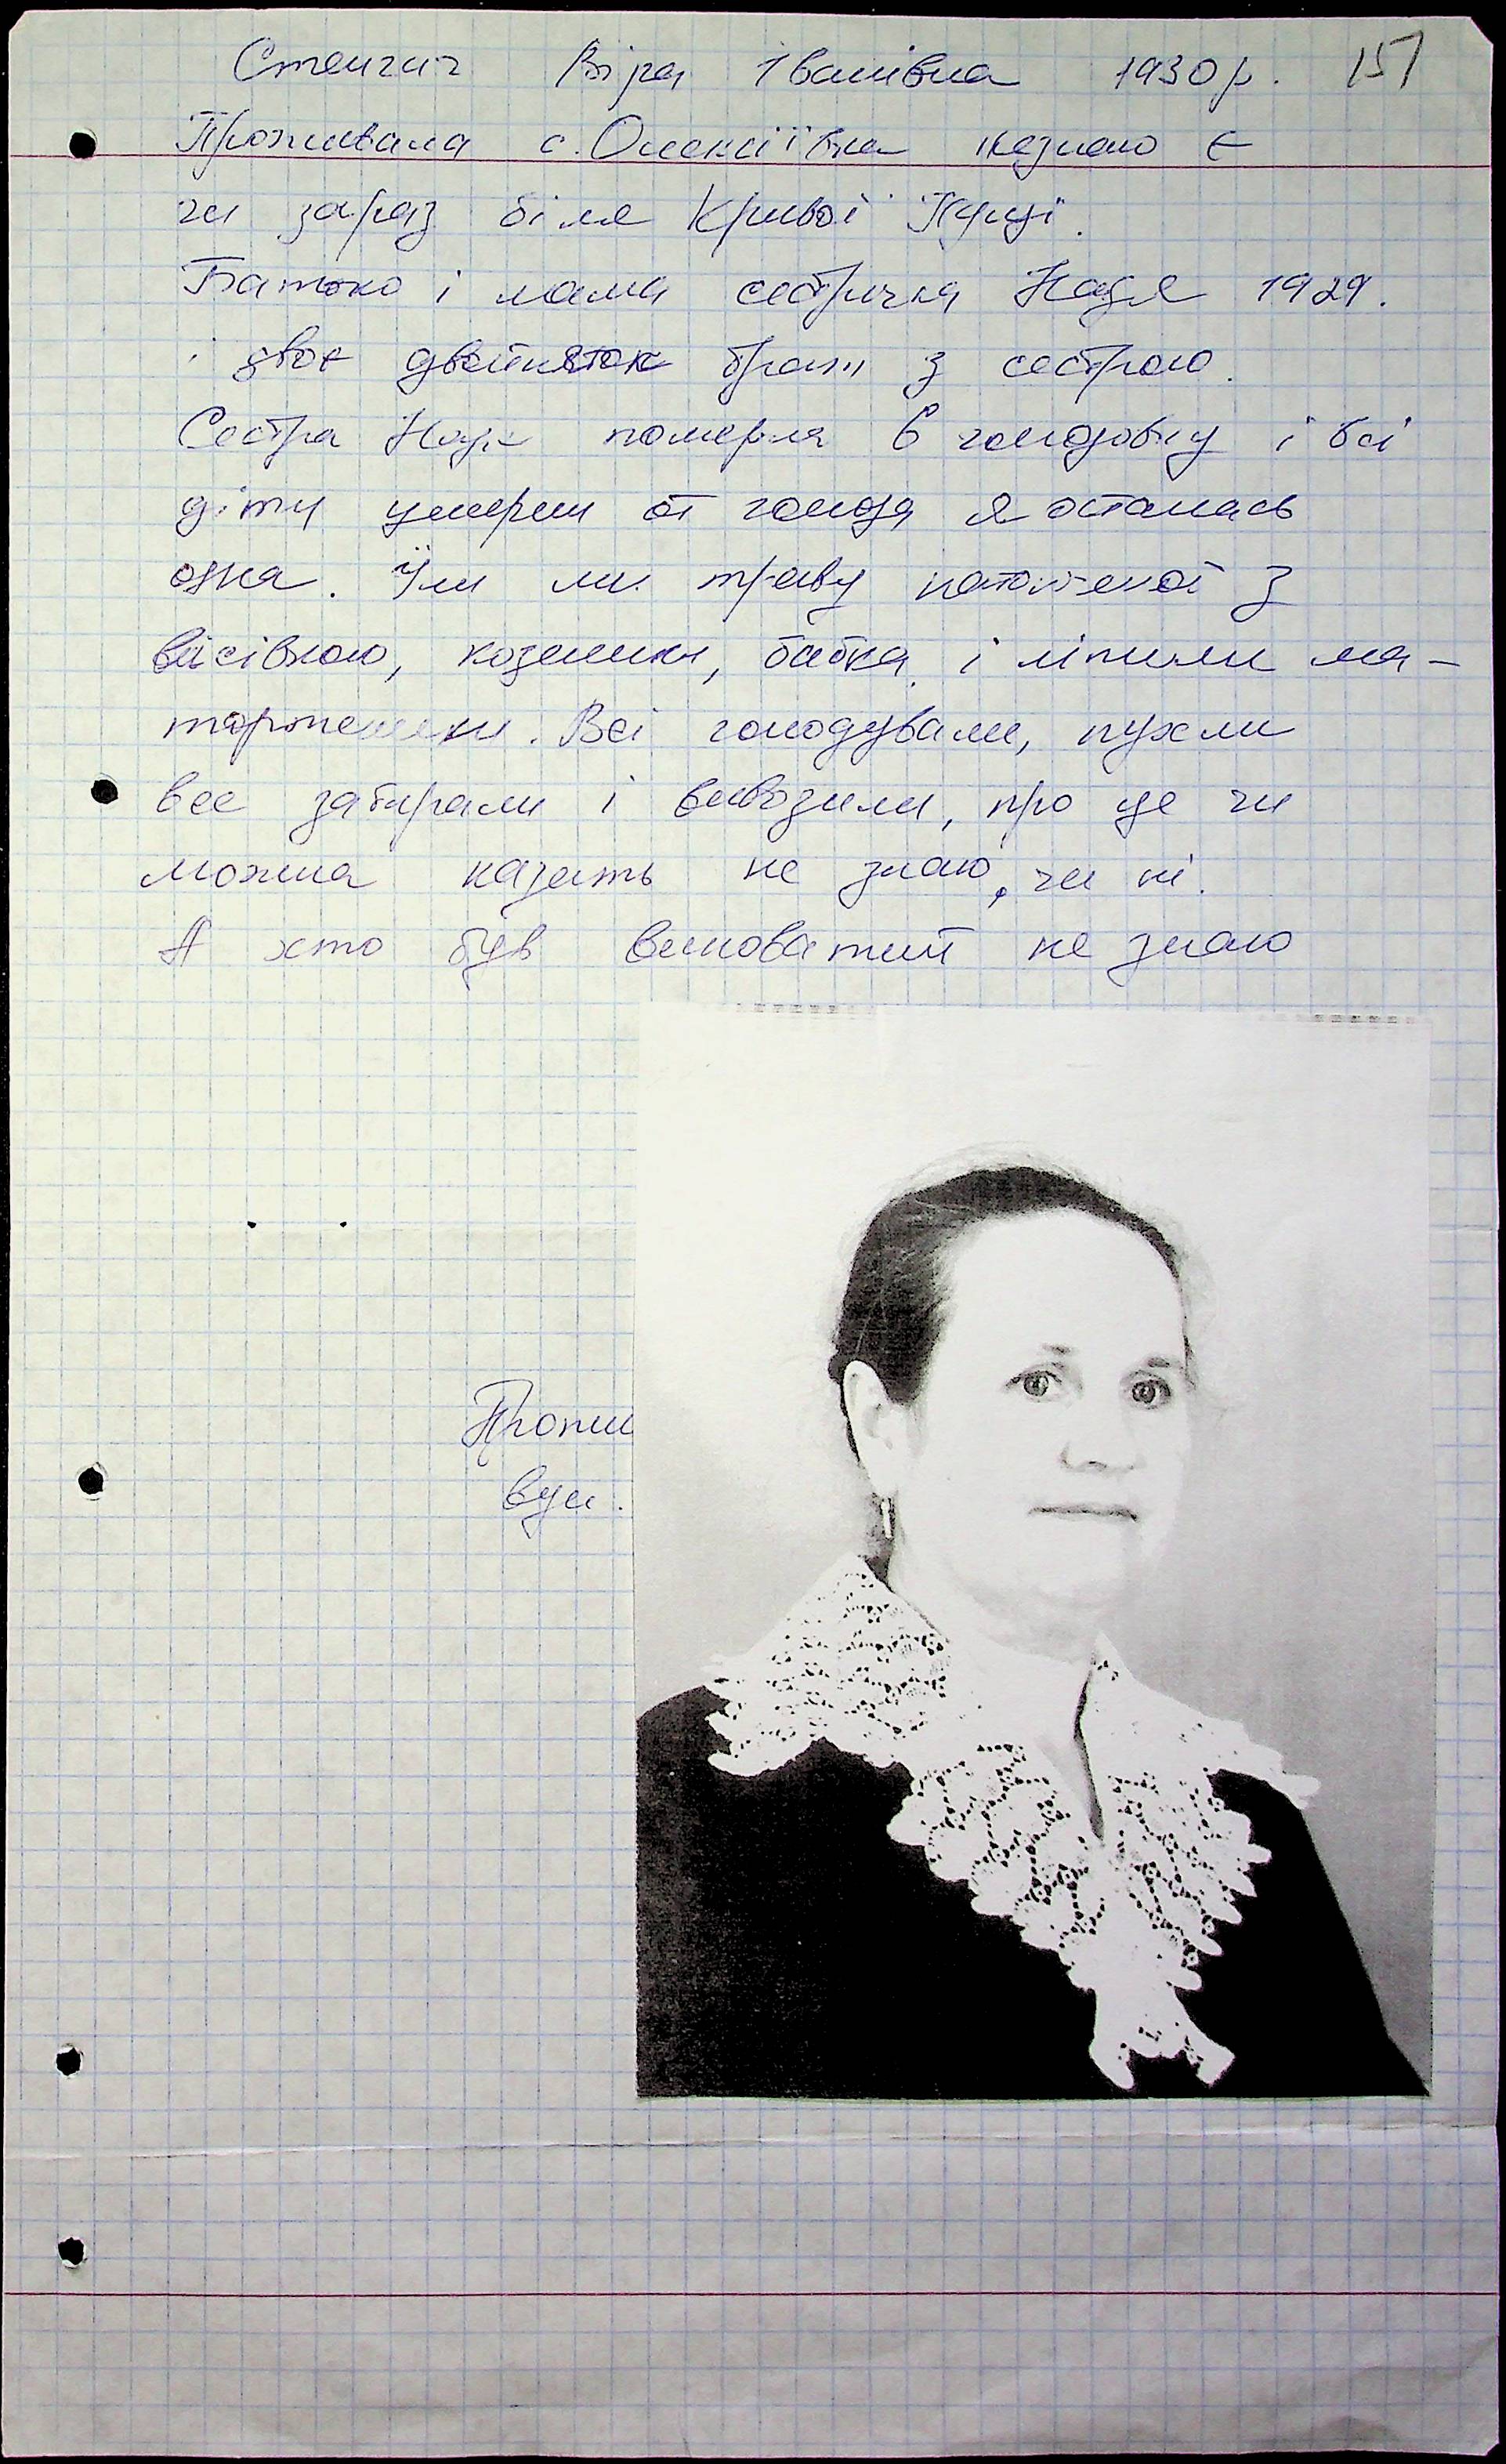 Віра Іванівна 1930 р. 157
Проживала с. Олексіївка незнаю є
чи зараз біля Кривої Пущі.
Батько і мама сестричка Надя 1929.
і двоє двойняток брат з сестрою.
Сестра Надя померла в голодовку і всі
діти умерли от голода я осталась
одна. Їли ми траву натовченої з
висівкою, козельки, бабка і ліпили ма-
торженики. Всі голодували, пухли
все забирали і вивозили, про це чи
можна казать не знаю, чи ні.
А хто був виноватий не знаю
Прожи
вул.